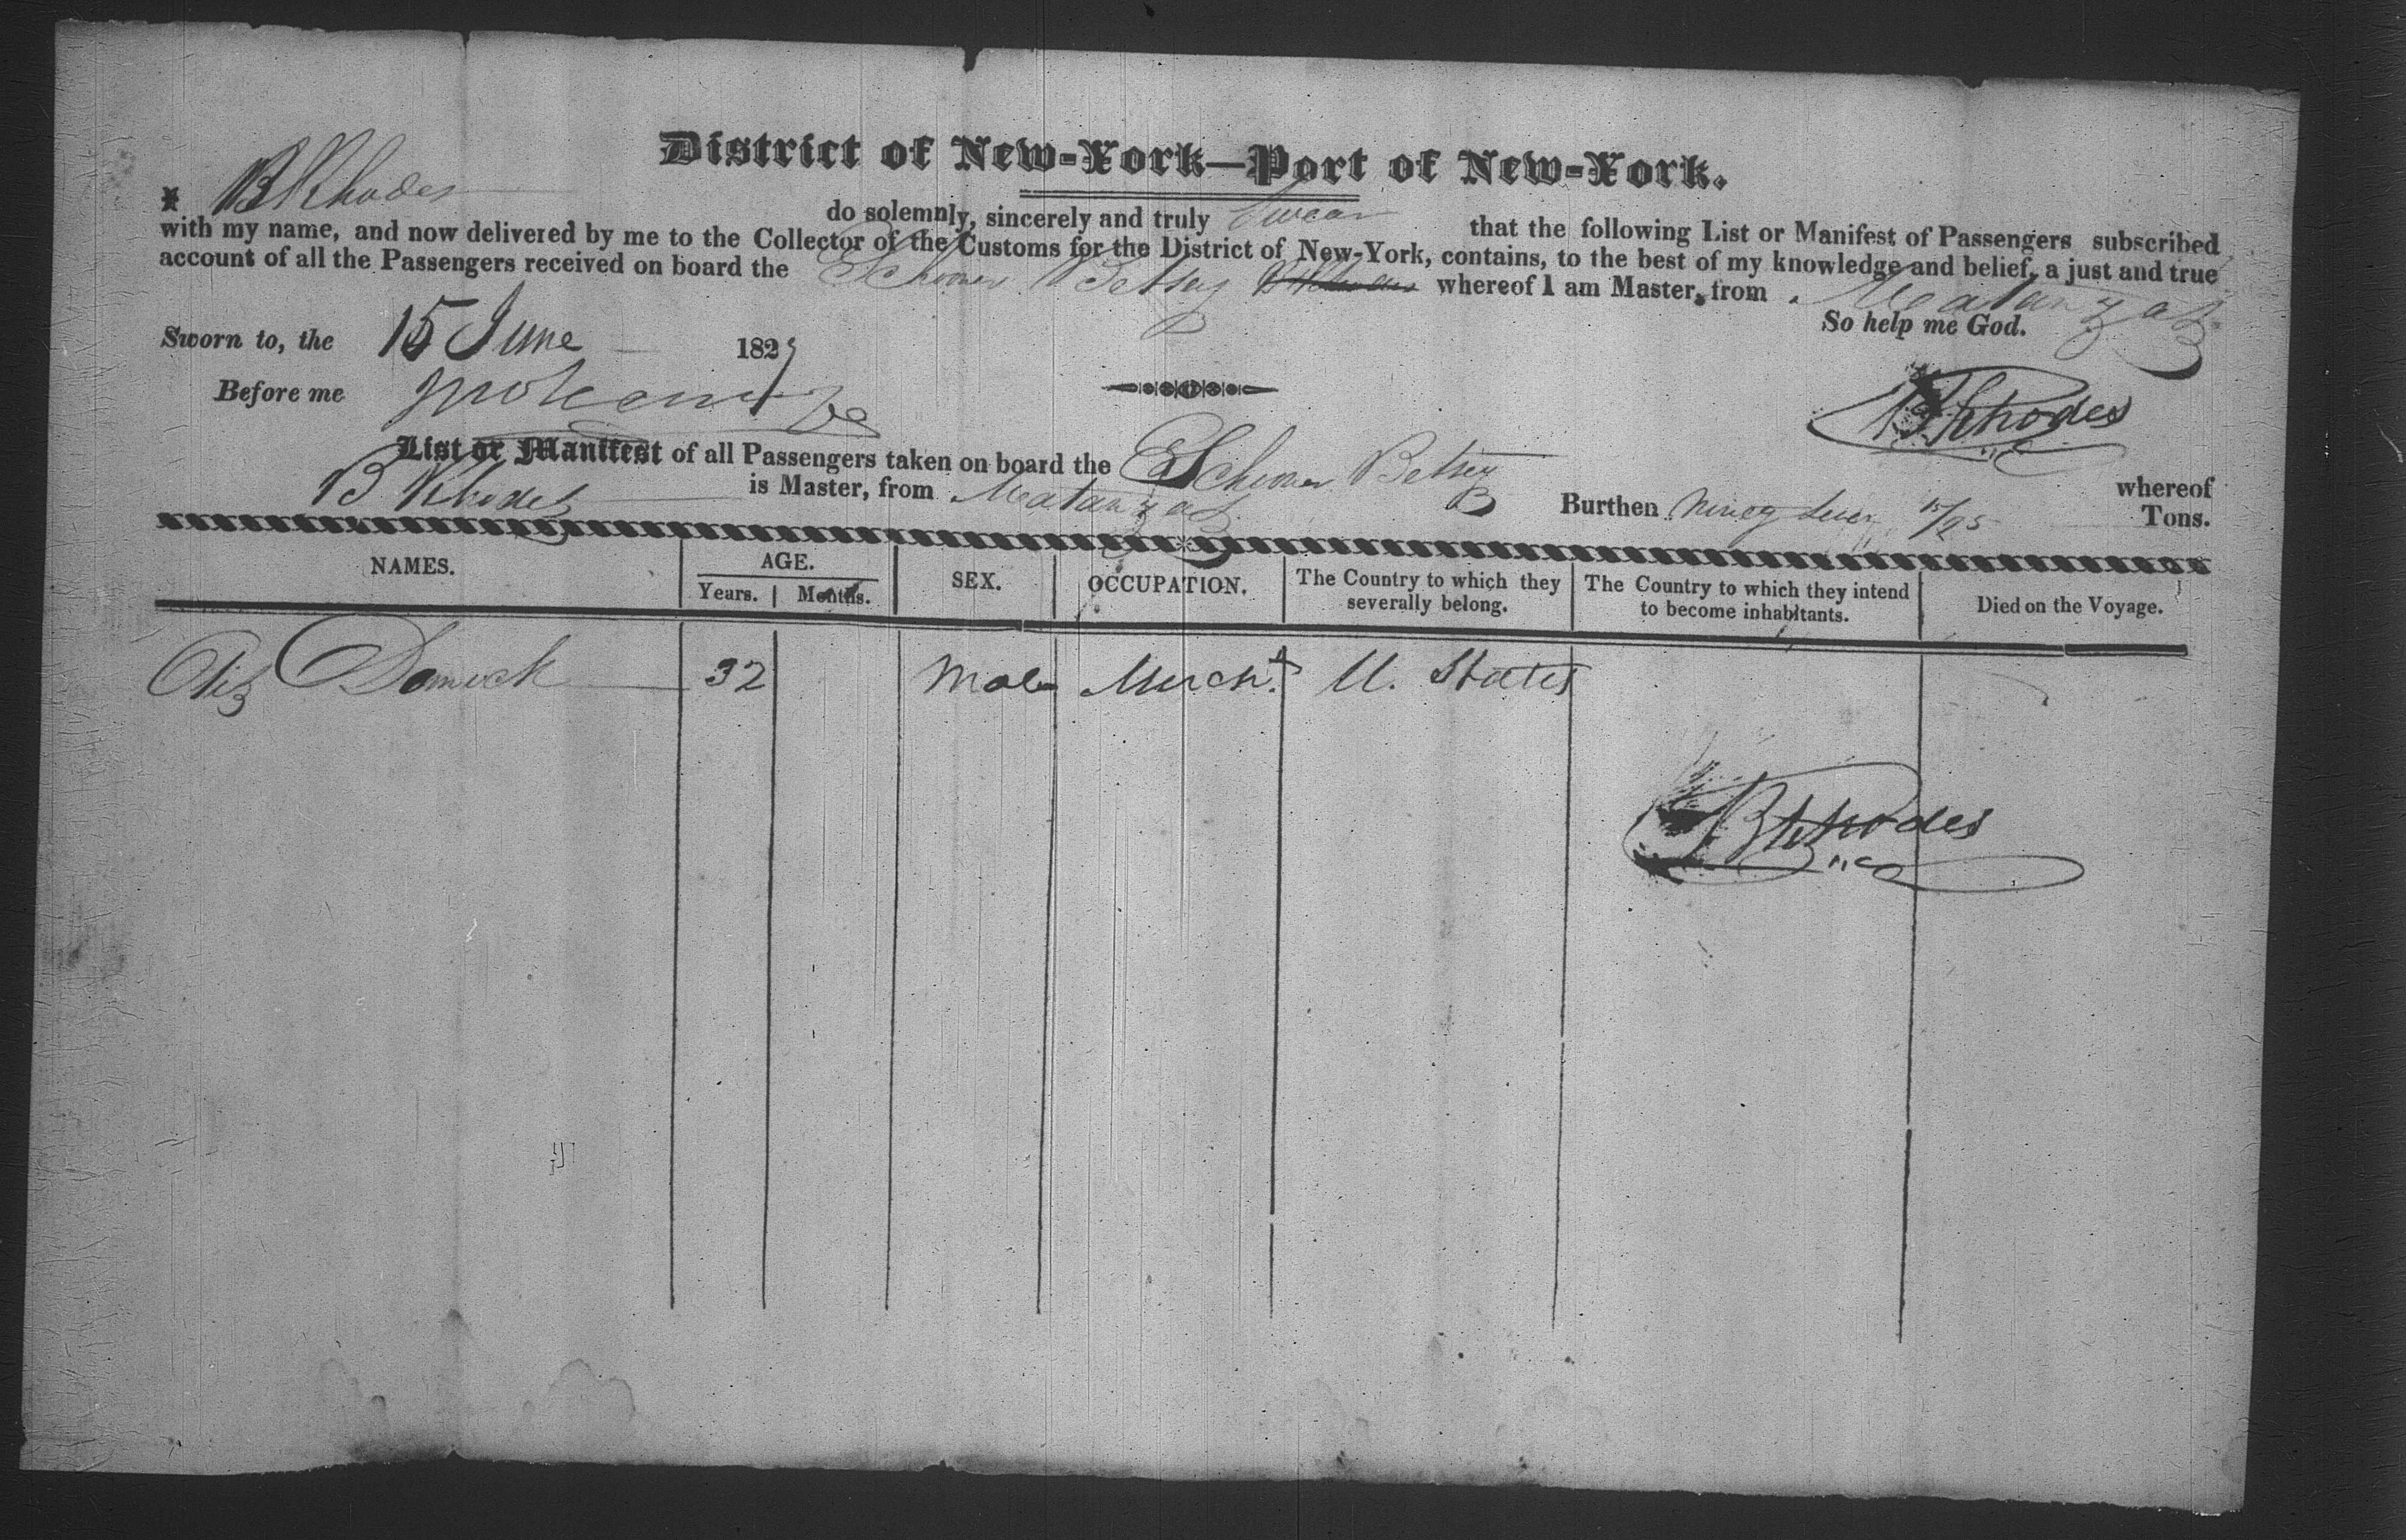 District of New-York—Port of New-York.
I B Rhodes do solemnly, sincerely and truly Swear that the following List or Manifest of Passengers subscribed
with my name, and now delivered by me to the Collector of the Customs for the District of New-York, contains, to the best of my knowledge and belief, a just and true
account of all the Passengers received on board the Schooner Betsey whereof I am Master, from Matanzas
So help me God.
Sworn to, the 15 June 182
Before me
B Rhodes
List or Manifest of all Passengers taken on board the Schooner Betsey whereof
B Rhodes is Master, from Matanzas Burthen /95 Tons.
NAMES. AGE. SEX. OCCUPATION. The Country to which they severally belong. The Country to which they intend to become inhabitants. Died on the Voyage.
Years. Months.
32 Male Mercht U. States
B Rhodes